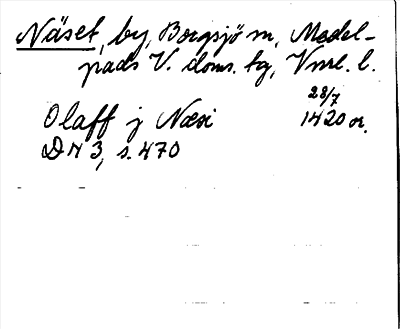 Näset, by, Borgsjö sn, Medel-
pads V. doms. tg, Vnrl. l.
28/7
Olaff j Næsi 1420 or.
DN 3, s. 470